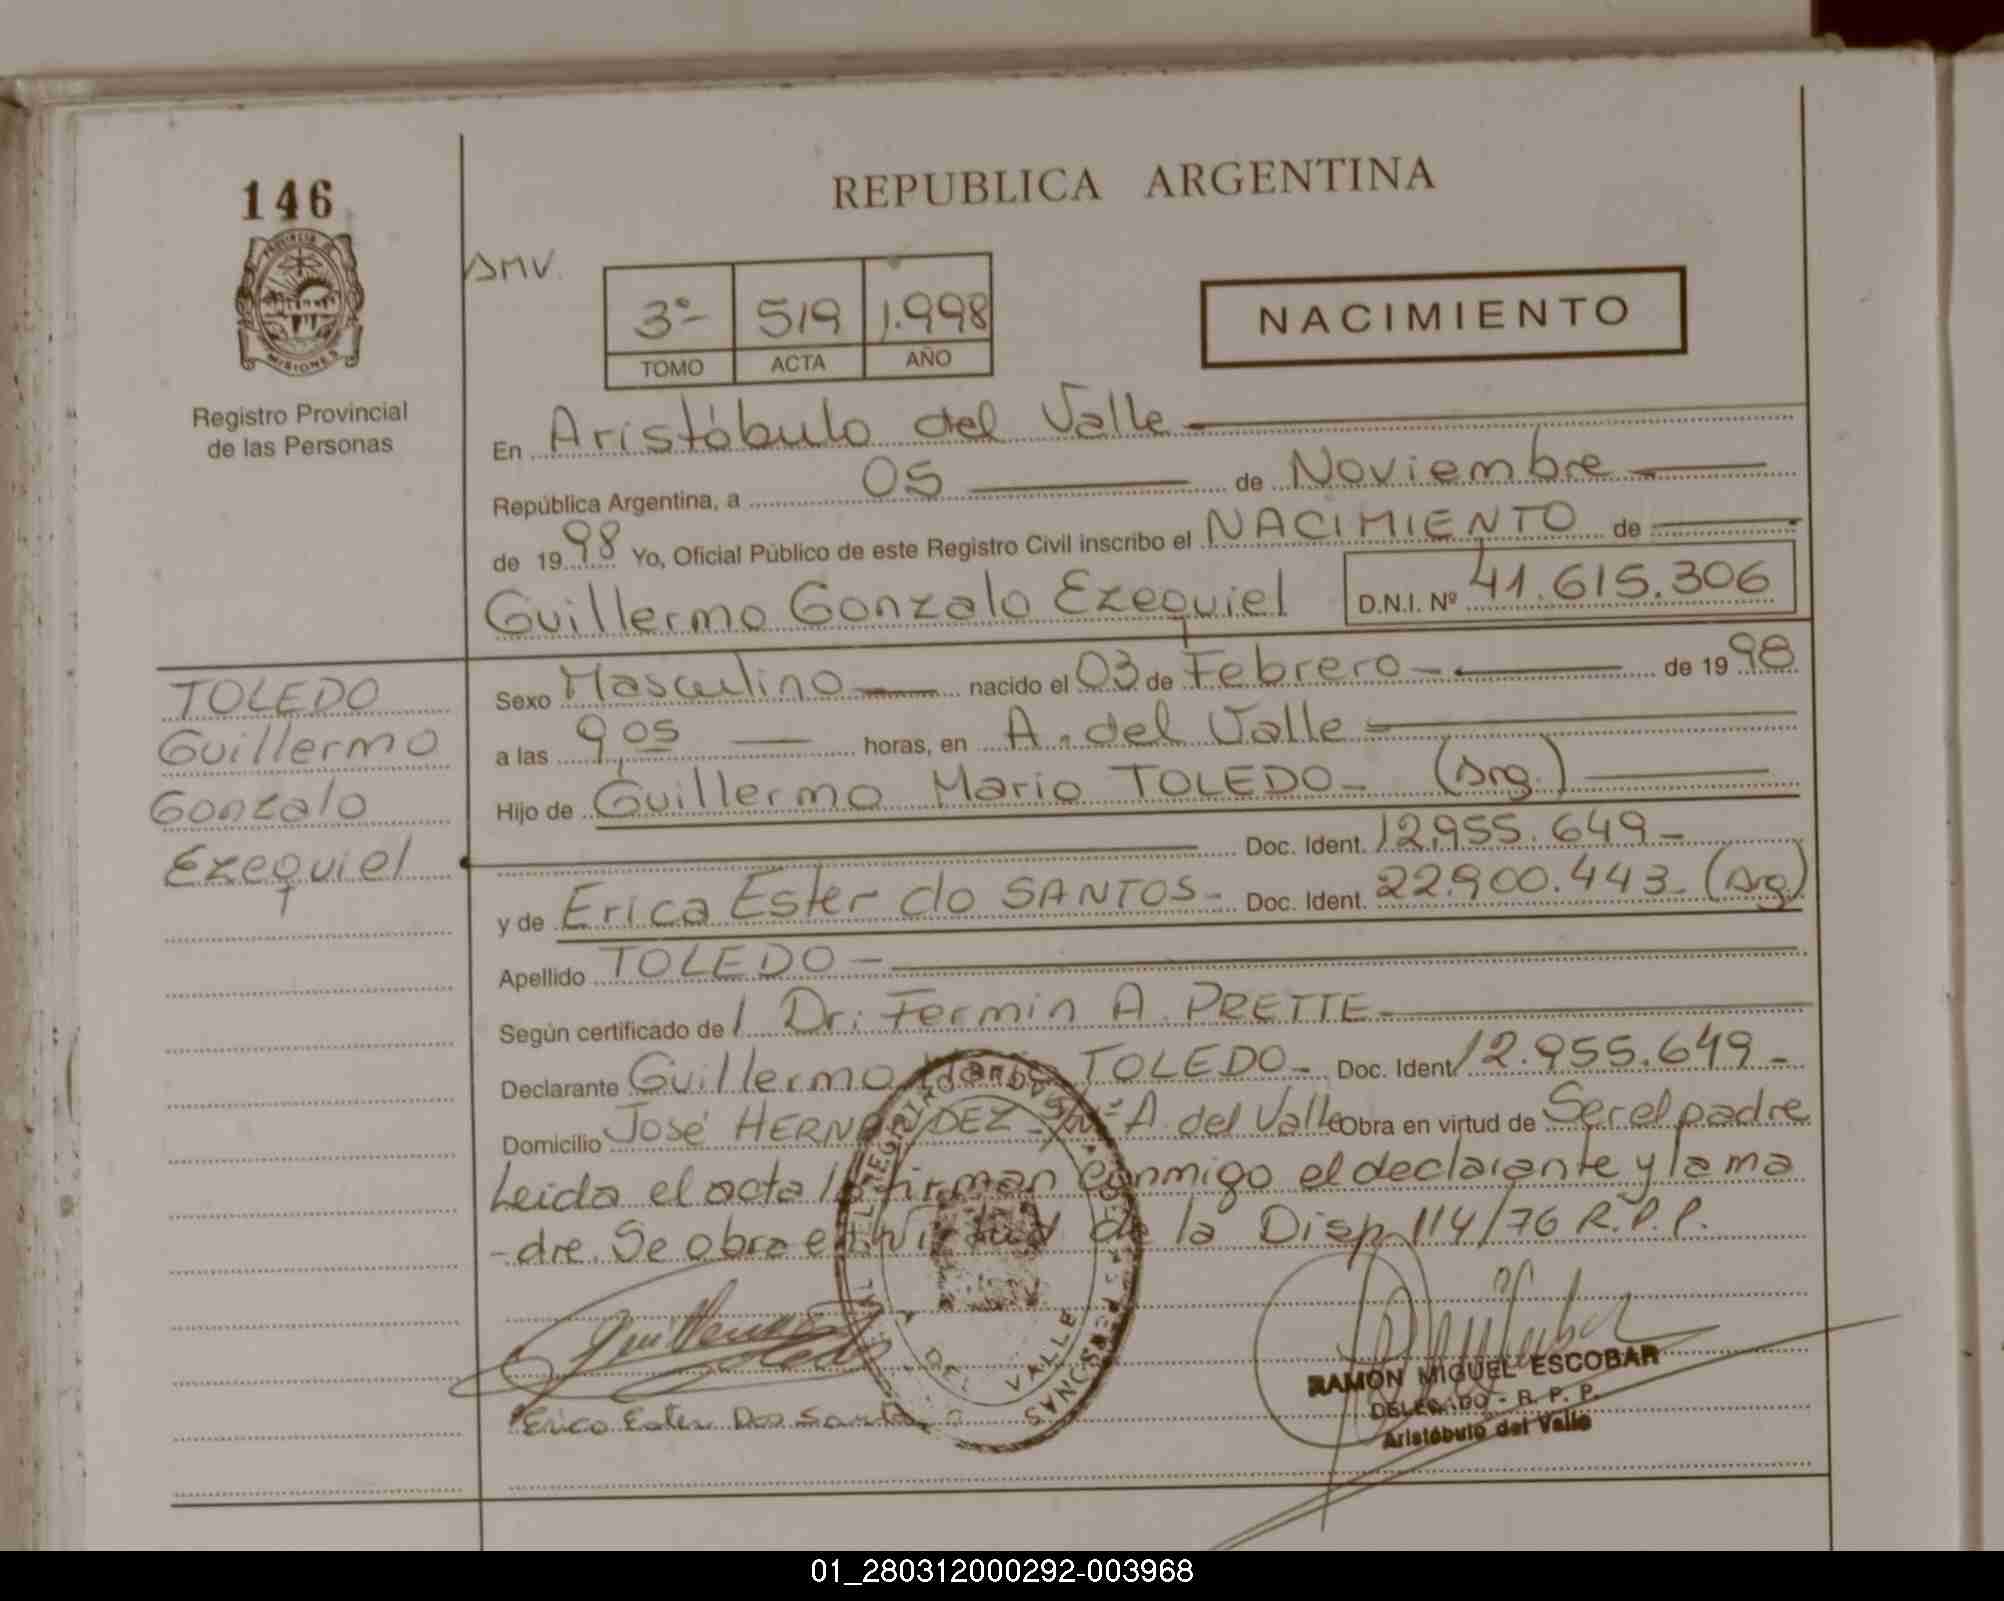 146
PROVINCIA DE
MISIONES
Registro Provincial
de las Personas
REPUBLICA ARGENTINA
3º 519 1.998
TOMO ACTA AÑO
NACIMIENTO
En Aristóbulo del Valle
República Argentina, a 05 de Noviembre
de 1998 Yo, Oficial Público de este Registro Civil inscribo el NACIMIENTO de
Guillermo Gonzalo Ezequiel D.N.I. Nº 41.615.306
TOLEDO
Guillermo
Gonzalo
Ezequiel
Sexo Masculino nacido el 03 de Febrero de 1998
a las 9,05 horas, en A. del Valle
Hijo de Guillermo Mario TOLEDO (Arg.)
Doc. Ident. 12.955.649
y de Erica Ester do SANTOS Doc. Ident. 22.900.443 (Arg.)
Apellido TOLEDO
Según certificado de Dr. Fermin A. PRETTE
Declarante Guillermo TOLEDO Doc. Ident 12.955.649
Domicilio José HERNANDEZ A. del Valle Obra en virtud de Ser el padre
Leida el acta la firman conmigo el declarante y la ma
-dre. Se obra en virtud de la Disp 114/76 R.P.P.
VALLE
RAMON MIGUEL ESCOBAR
DELEGADO - R. P. P.
Aristóbulo del Valle
Erica Ester Dos Santos
01_280312000292-003968